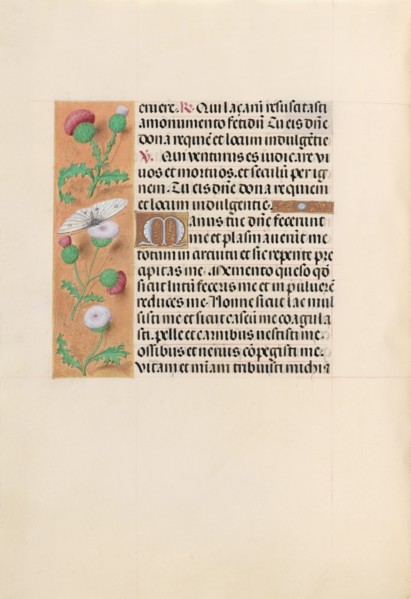 eruere. R. Qui lazarū resuscitasti
a monumento fetidū Tu eis dn̄e
dona requiē et locum indulgētie
V. Qui venturus es iudicare vi
uos et mortuos, et seculū per ig
nem. Tu eis dn̄e dona requiem
et locum indulgentie.
Manus tue dn̄e fecerunt
me et plasmauerūt me
totum in circuitu et sic repente pre
cipitas me. Memento queso qd̄
sicut lutū feceris me et in puluerē
reduces me. Nonne sicut lac mul
sisti me et sicut caseū me coagula
sti. pelle et carnibus uestisti me.
ossibus et neruis cōpegisti me.
vitam et mīam tribuisti michi